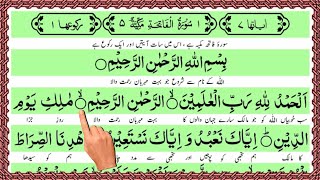 اٰیاتها ۷ ۱ سُوْرَةُ الْفَاتِحَةِ مَكِّيَّةٌ ۵ رکوعها ۱
سورۂ فاتحہ مکیہ ہے، اس میں سات آیتیں اور ایک رکوع ہے
بِسْمِ اللّٰهِ الرَّحْمٰنِ الرَّحِيْمِ
اللہ کے نام سے شروع جو بہت مہربان رحمت والا
اَلْحَمْدُ لِلّٰهِ رَبِّ الْعٰلَمِيْنَ الرَّحْمٰنِ الرَّحِيْمِ مٰلِكِ يَوْمِ
سب خوبیاں اللہ کو جو مالک سارے جہان والوں کا بہت مہربان رحمت والا روز جزا
الدِّيْنِ اِيَّاكَ نَعْبُدُ وَ اِيَّاكَ نَسْتَعِيْنُ اهْدِنَا الصِّرَاطَ
کا مالک ہم تجھی کو پوجیں اور تجھی سے ہم کو سیدھا